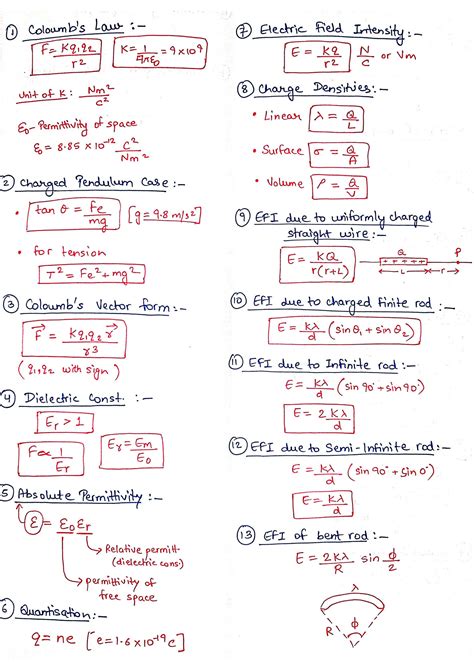 ① Coloumb's Law :-
F = Kq₁q₂ / r²   K = 1 / 4πε₀ = 9×10⁹
unit of K : Nm² / C²
ε₀ - Permittivity of space
ε₀ = 8.85 × 10⁻¹² C² / Nm²
② Charged Pendulum Case :-
• tan θ = Fe / mg   [g = 9.8 m/s²]
• for tension
T² = Fe² + mg²
③ Coloumb's Vector form :-
F⃗ = Kq₁q₂ r⃗ / r³
(q₁,q₂ with sign)
④ Dielectric Const. :-
Er > 1
F ∝ 1 / Er   Er = Em / E₀
⑤ Absolute Permittivity :-
ε = ε₀εr
Relative permitt-
(dielectric cons)
permittivity of
free space
⑥ Quantisation :-
q = ne [e = 1.6 × 10⁻¹⁹ C]
⑦ Electric Field Intensity :-
E = kq / r²   N / C or Vm
⑧ Charge Densities :-
• Linear λ = Q / L
• Surface σ = Q / A
• Volume ρ = Q / V
⑨ EFI due to uniformly charged
straight wire :-
E = KQ / r(r+L)
Q P
+ + + + +
L r
⑩ EFI due to charged finite rod :-
E = Kλ / d (sin θ₁ + sin θ₂)
⑪ EFI due to Infinite rod :-
E = Kλ / d (sin 90° + sin 90)
E = 2Kλ / d
⑫ EFI due to Semi-Infinite rod :-
E = Kλ / d (sin 90° + sin 0°)
E = Kλ / d
⑬ EFI of bent rod :-
E = 2Kλ / R sin ϕ / 2
λ
R ϕ